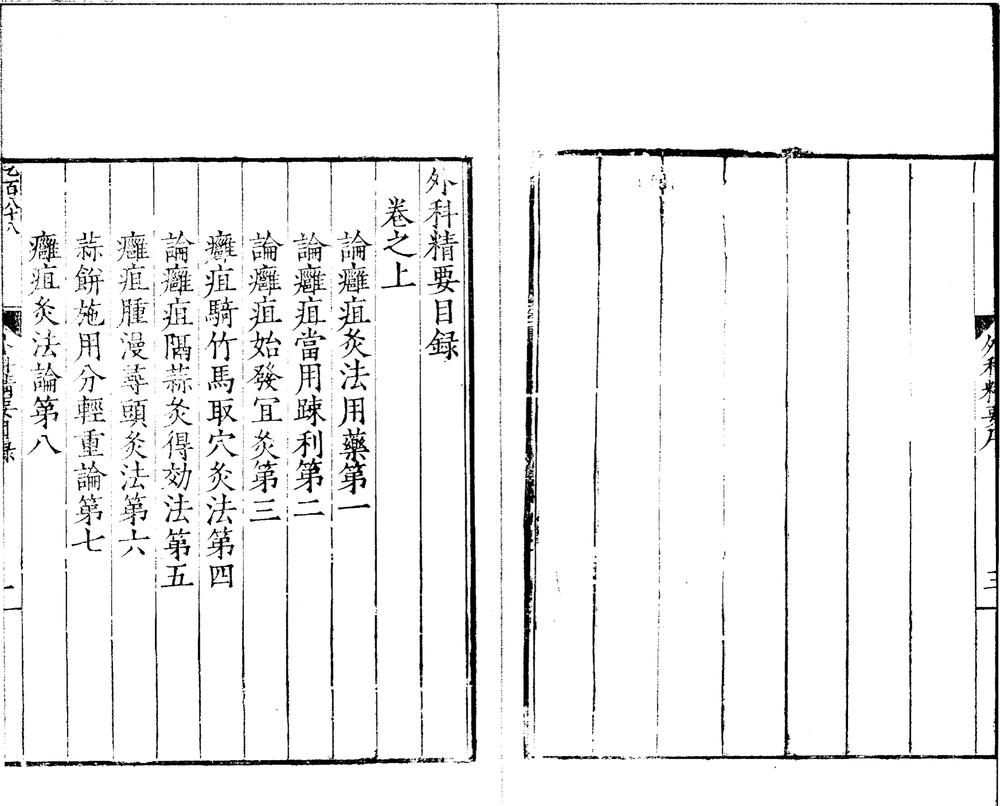 外科精要序
三
外科精要目録
卷之上
論癰疽灸法用藥第一
論癰疽當用踈利第二
論癰疽始發宜灸第三
癰疽騎竹馬取穴灸法第四
論癰疽隔蒜灸得効法第五
癰疽腫漫蕁頭灸法第六
蒜餅施用分輕重論第七
癰疽灸法論第八
乙百八十八
外科精要目録
一